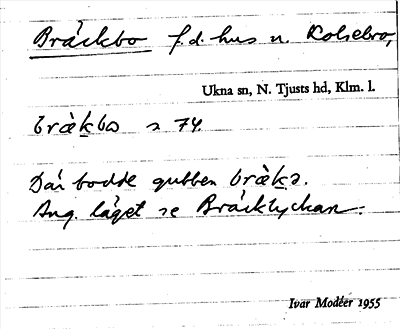 Bräckbo f.d. hus n. Kolsebro,
Ukna sn, N. Tjusts hd, Klm. l.
bràkbo s 74.
Där bodde gubben bràkə.
Ang. läget se Bräcklyckan.
Ivar Modéer 1955